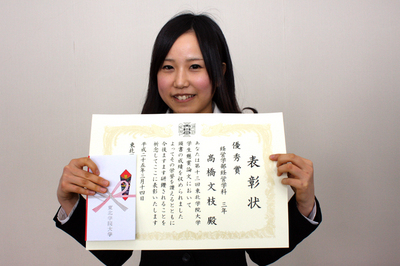 表彰状
優秀賞
経営学部経営学科 三年
高橋文枝殿
あなたは第十二回東北学院大学
学生懸賞論文において
頭書の成績を収められました
よってその学業を讃えるとともに
今後ますます研鑽されることを
祈念してここに表彰いたします
平成二十五年三月十四日
東北
東北学院大学